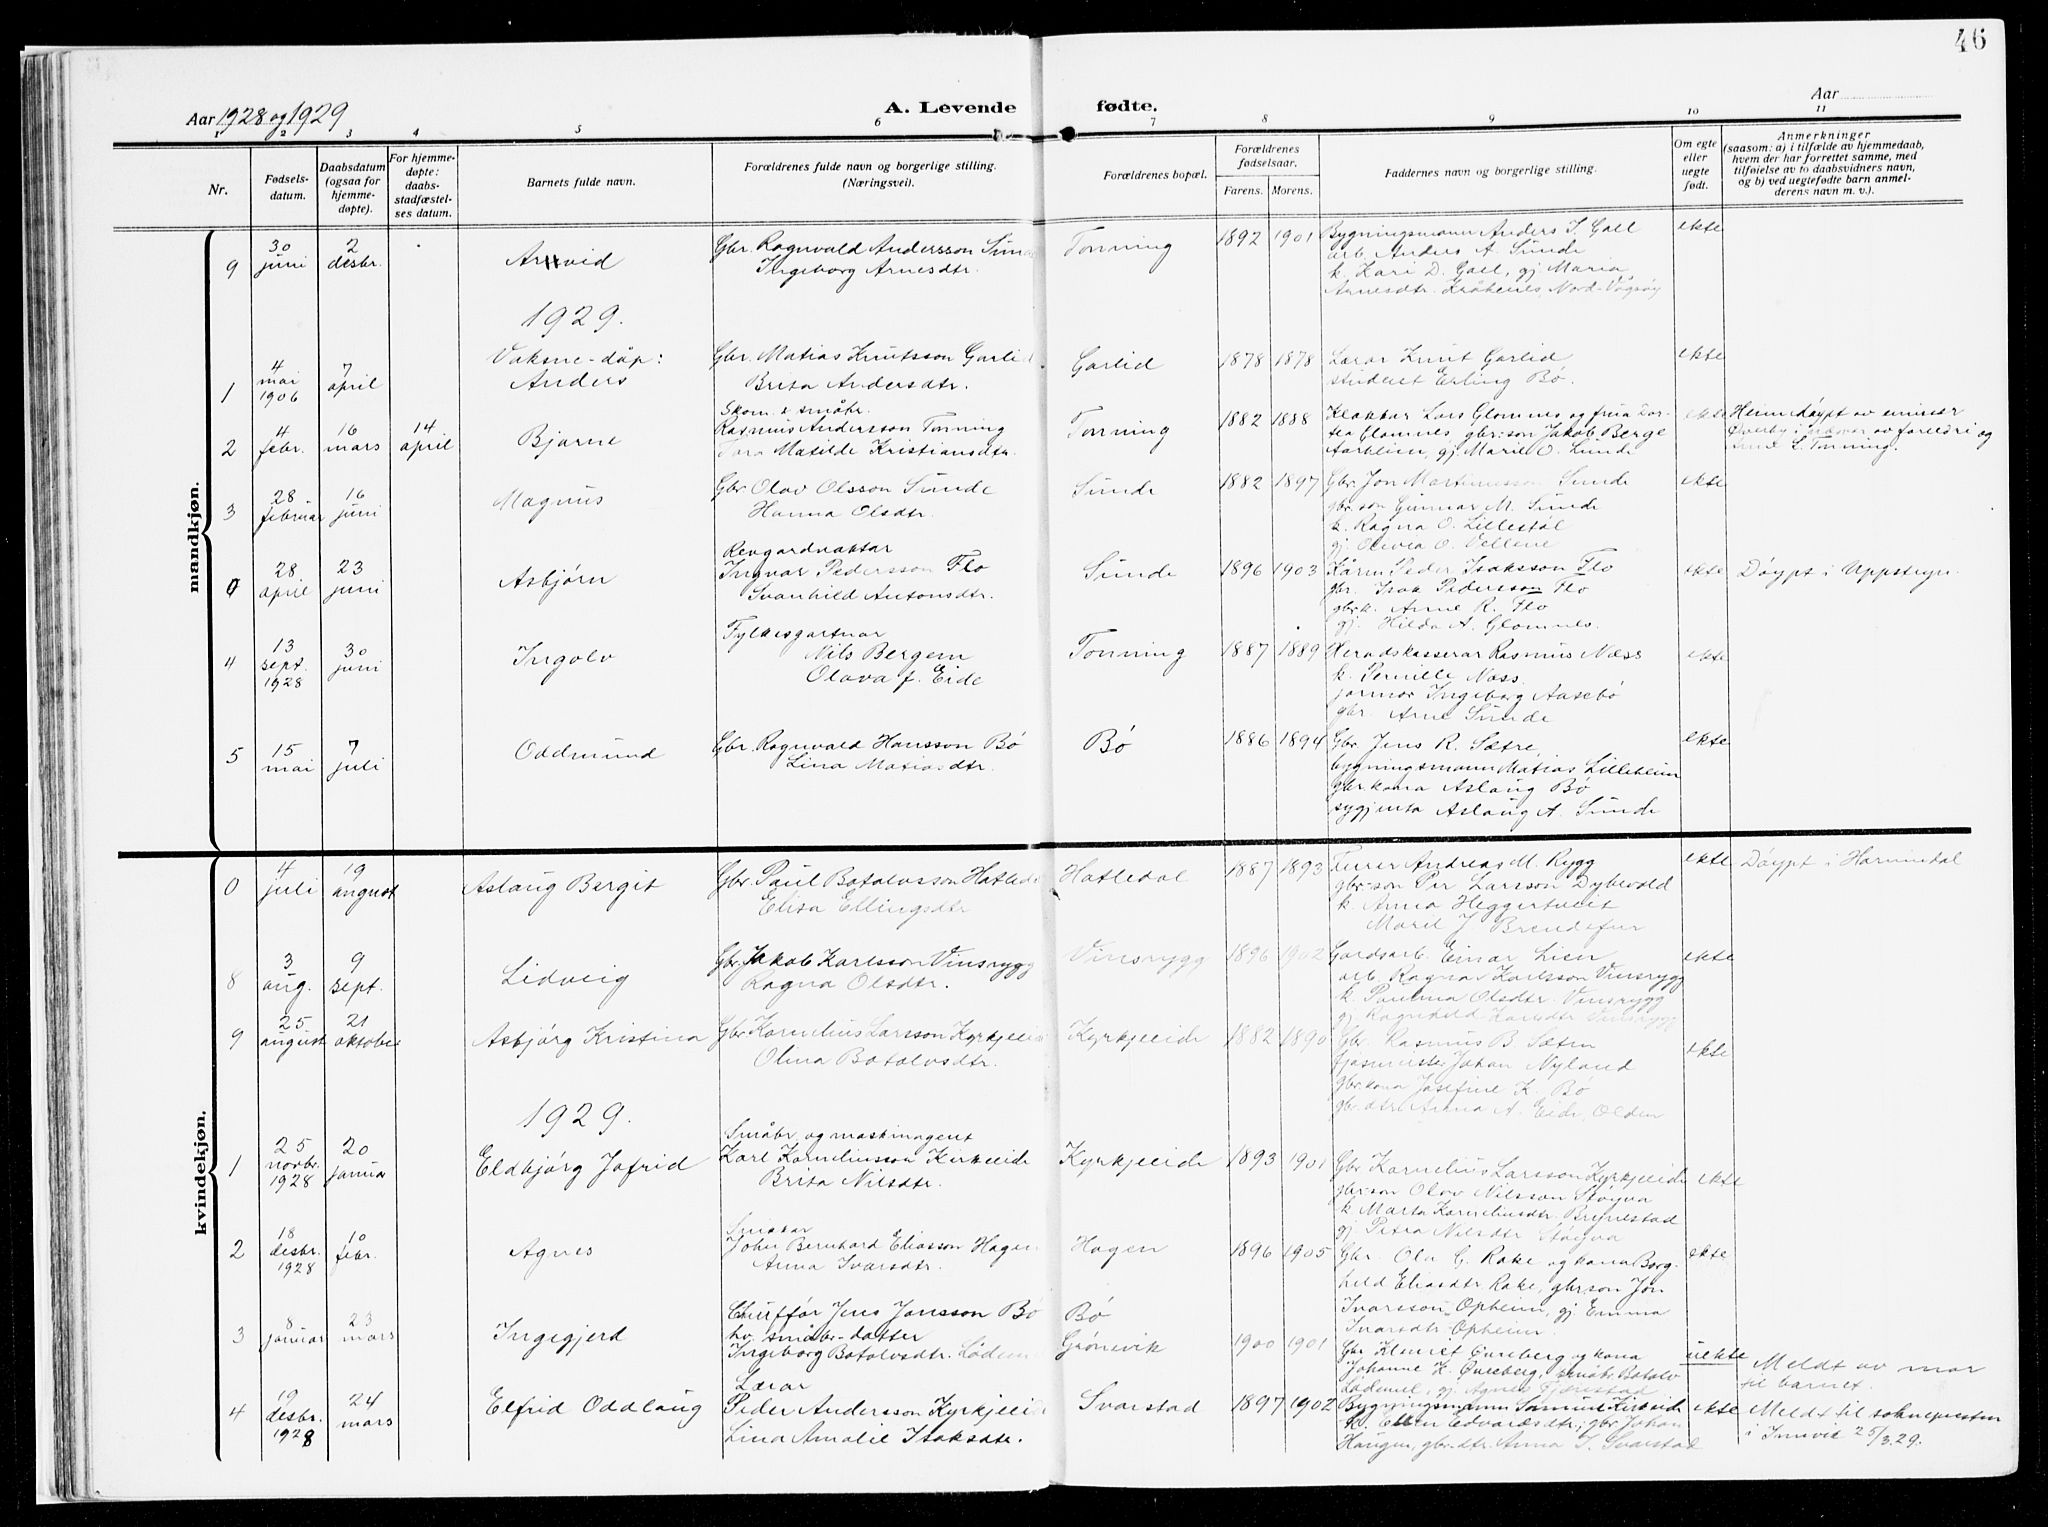 46
Aar 1928 og 1929
A. Levende fødte.
Aar
1 2 3 4 5 6 7 8 9 10 11
Nr.
Fødsels-
datum.
Daabsdatum
(ogsaa for
hjemme-
døpte).
For hjemme-
døpte:
daabs-
stadfæstel-
ses datum.
Barnets fulde navn.
Forældrenes fulde navn og borgerlige stilling.
(Næringsvei).
Forældrenes bopæl.
Forældrenes
fødselsaar.
Farens. Morens.
Faddernes navn og borgerlige stilling.
Om egte
eller
uegte
født.
Anmerkninger
(saasom: a) i tilfælde av hjemmedaab,
hvem der har forrettet samme, med
tilføielse av to daabsvidners navn,
og b) ved uegtefødte barn anmel-
derens navn m. v.).
mandkjøn.
9
30
juni
2
desbr.
Arvid
Gbr. Ragnvald Andersson Sunde
Ingeborg Arnesdtr.
Tonning
1892 1901
Bygningsmann Anders S. Gael
arb. Anders A. Sunde
k. Kari D. Gael, gj. Maria
Arnesdtr. Kråkenes Nord-Vågsøy
ekte
1929.
1
4
mai
1906
7
april
Vaksne-dåp:
Anders
Gbr. Matias Knutsson Garlid
Brita Andersdtr.
Garlid
1878 1878
Lærar Knut Garlid
student Erling Bø.
ekte
2
4
febr.
16
mars
14
april
Bjarne
Skom. & småbr.
Rasmus Andersson Tonning
Matilde Kristiansdtr.
Tonning
1882 1888
Klokkar Lars Glomnes og frua
Glomnes, gbr:son Jakob Berge
gj. Marie O. Sunde
ekte
Heimedøypt av emissær
Øverby i nærvær av foreldri og
S. Tonning.
3
28
februar
16
juni
Magnus
Gbr. Olav Olsson Sunde
Hanna Olsdtr.
Sunde
1882 1897
Gbr. Jon Martinusson Sunde
gbr.son Gunnar M. Sunde
k. Ragna O. Lillestøl
gj. Olivia O. Vellene
ekte
0
28
april
23
juni
Asbjørn
Revgardvaktar
Ingvar Pedersson Flo
Svanhild Antonsdtr.
Sunde
1896 1903
Kårm. Peder Isaksson Flo
gbr. Isak Pedersson Flo
gbrk. Anne R. Flo
gj. Hilda A. Glomnes.
ekte
Døypt i Uppstryn.
4
13
sept.
1928
30
juni
Ingolv
Fylkesgartnar
Nils Bergem
Olava f. Eide
Tonning
1887 1889
Heradskasserar Rasmus Næss
k. Pernille Næss.
jormor Ingeborg Aasebø
gbr. Arne Sunde
ekte
5
15
mai
7
juli
Oddmund
Gbr. Ragnvald Hansson Bø
Lina Matiasdtr.
Bø
1886 1894
Gbr. Jens R. Sætre,
bygningsmann Matias Lilleheim
gbrkona Aslaug Bø
sygjenta Aslaug A. Sunde
ekte
kvindekjøn.
0
4
juli
19
august
Aslaug Bergit
Gbr. Paul Botolvsson Hatledal
Elisa Ellingsdtr
Hatledal
1887 1893
Andreas M. Rygg
gbr-son Per Larsson Dybevold
k. Anna Heggertveit
Marie J. Brendefur
ekte
Døypt i Hornindal
8
3
aug.
9
sept.
Lidveig
Gbr. Jakob Karlsson Vinsrygg
Ragna Olsdtr.
Vinsrygg
1896 1902
Gardsarb. Einar Lien
arb. Ragna Karlsson Vinsrygg
k. Paulina Olsdtr. Vinsrygg
gj. Ragnhild Karlsdtr Vinsrygg
ekte
9
25
august
21
oktober
Asbjørg Kristina
Gbr. Kornelius Larsson Kyrkjeeide
Olina Botolvsdtr.
Kyrkjeeide
1882 1890
Gbr. Rasmus B. Sætren
fjøsmeister Johan Nyland
gbr.kona Josefine K. Bø
gbr.dtr. Anna A. Eide, Olden
ekte
1929.
1
25
novbr.
1928
20
januar
Eldbjørg Jofrid
Småbr. og maskinagent
Karl Korneliusson Kirkjeeide
Brita Nilsdtr.
Kyrkjeeide
1893 1901
Gbr. Kornelius Larsson Kyrkjeeide
gbr:son Olav Nilsson Støyva
k. Marta Korneliusdtr. Brynestad
gj. Petra Nilsdtr Støyva
ekte
2
18
desbr.
1928
10
febr.
Agnes
Snikkar
John Bernhard Eliasson Hagen
Anna Ivarsdtr.
Hagen
1896 1905
Gbr. Ola G. Rake og kona Borg-
hild Eliasdtr Rake, gbrson Jon
Ivarsson Opheim, gj. Emma
Ivarsdtr. Opheim.
ekte
3
8
januar
23
mars
Ingegjerd
Chufför Jens Jansson Bø
hv. småbr-datter
Ingeborg Botolvsdtr. Lødemel
Bø
Grønevik
1900 1901
Gbr. Klemet Øvreberg og kona
Johanne K. Øvreberg, småbr. Botolv
Lødemel, gj. Agnes Tjærestad
uekte
Meldt av mor
til barnet.
4
19
desbr.
1928
24
mars
Elfrid Oddlaug
Lærar
Peder Andersson Kyrkjeeide
Lina Amalie Isaksdtr.
Svarstad
1897 1902
Bygningsmann Samuel Kirkeide
k. Ellen Edvardsdtr; gbr Johan
Haugen, gbr.dtr. Anna S. Svarstad
ekte
Meldt til soknepresten
i Innvik 25/3.29.